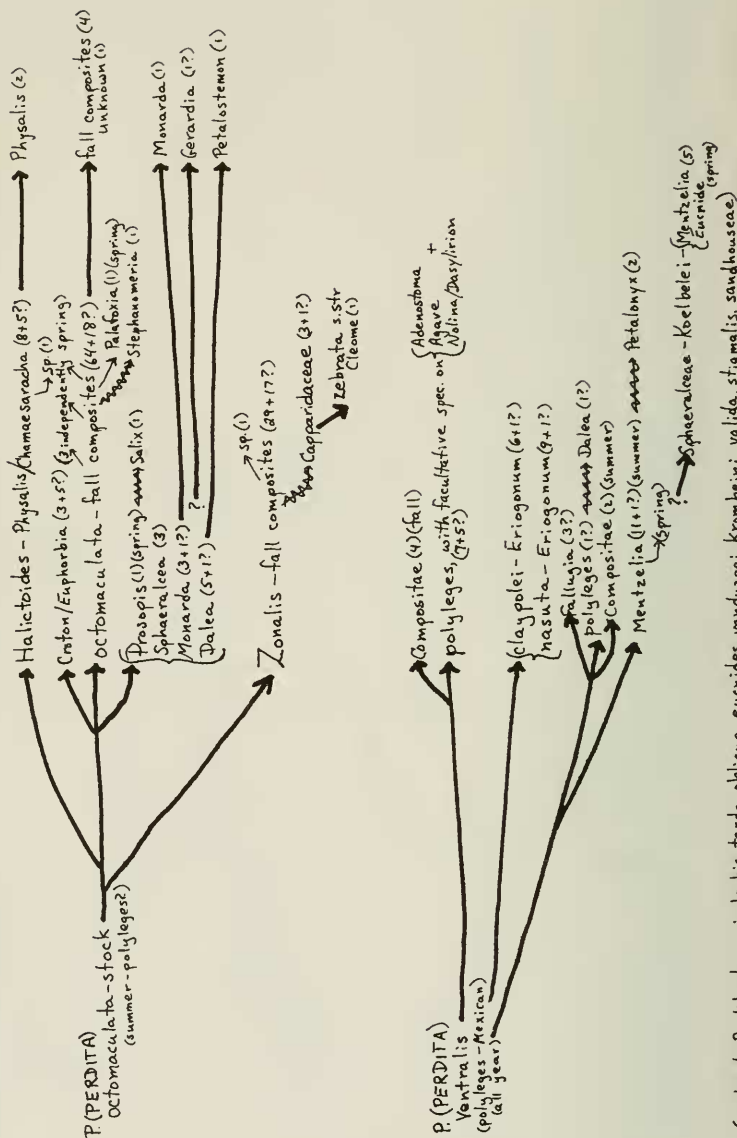 P. (PERDITA)
Octomaculata-stock
(summer-polyleges?)
Halictoides-Physalis/Chamaesaracha (8+5?)
Physalis (2)
sp. (1)
Croton/Euphorbia (3+5?) (3 independently spring)
Octomaculata-fall composites (64+18?)
fall composites (4)
unknown (1)
Palafoxia (1) (spring)
Stephanomeria (1)
Prosopis (1) (spring)
Salix (1)
Sphaeralcea (3)
Monarda (3+1?)
Monarda (1)
Gerardia (1?)
Dalea (5+1?)
?
Petalostemon (1)
Zonalis-fall composites (29+17?)
sp. (1)
Capparidaceae (3+1?)
zebrata s.str
Cleome (1)
P. (PERDITA)
Ventralis
(polyleges-Mexican)
(all year)
Compositae (4) (fall)
polyleges, with facultative spec. on
(7+5?)
Adenostoma
Agave +
Nolina/Dasylirion
claypolei-Eriogonum (6+1?)
hasuta-Eriogonum (9+1?)
Fallugia (3?)
polyleges (1?)
Dalea (1?)
Compositae (2) (summer)
Mentzelia (11+1?) (summer)
Petalonyx (2)
(spring)
?
Sphaeralceae-Koelbelei-
Mentzelia (5)
Eucnide
(spring)
tarda, obliqua, eucnides, krombeini, valida, stigmalis, sandhouseae)